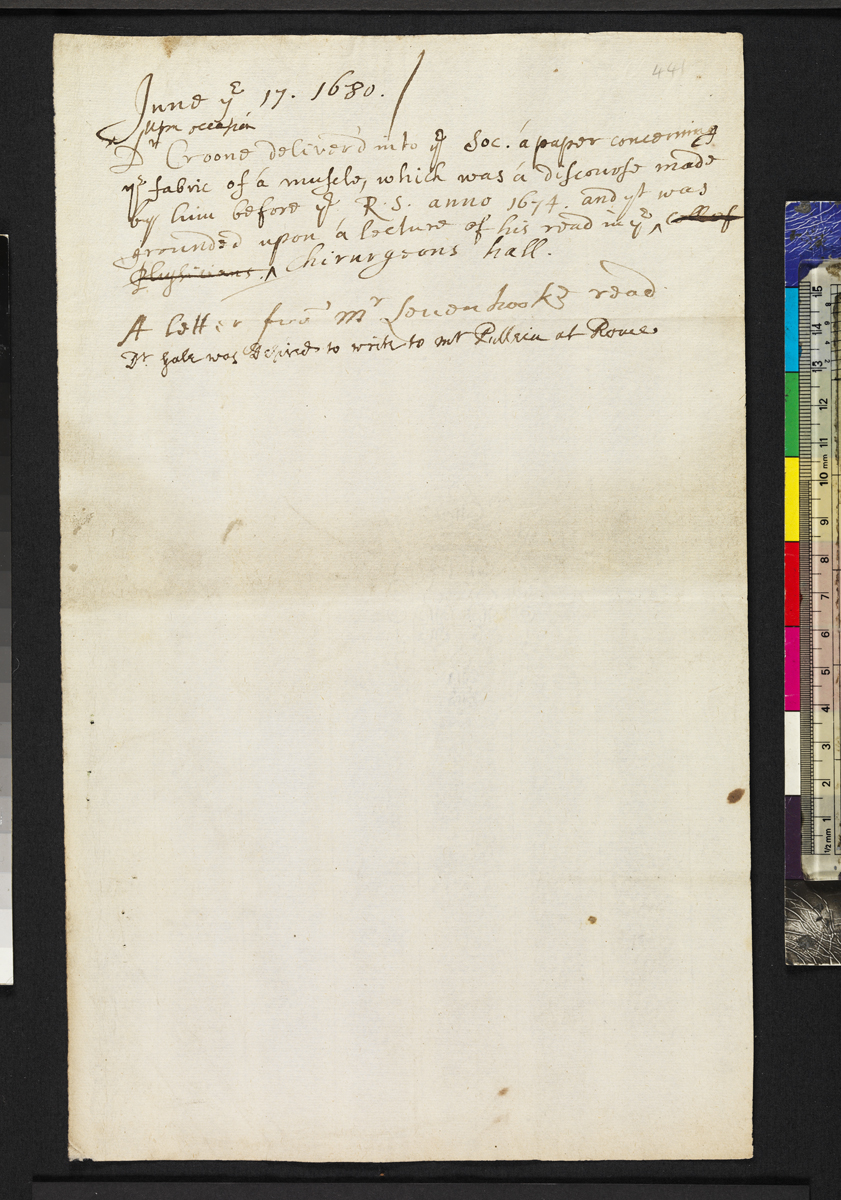 441
June ye 17. 1680.
upon occasion
Dr Croone deliver'd into ye Soc. a paper concerning
ye fabric of a muscle, which was a discourse made
by him before ye R. S. anno 1674. and yt was
grounded upon a lecture of his read in ye ^ Coll of
Physicians. ^ Chirurgeons hall.
A letter from Mr Leuenhooke read
Dr. Gale was desired to write to Mr Pullein at Rome.